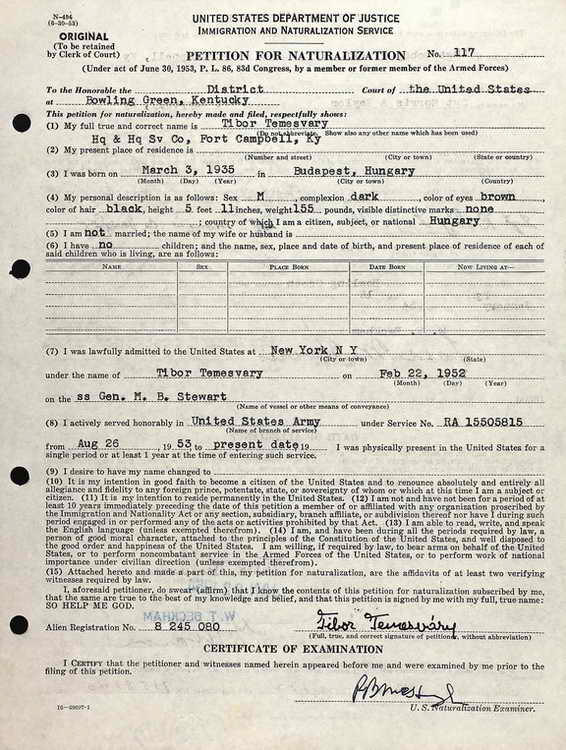 N-486
(6-30-53)
UNITED STATES DEPARTMENT OF JUSTICE
IMMIGRATION AND NATURALIZATION SERVICE
ORIGINAL
(To be retained
by Clerk of Court)
PETITION FOR NATURALIZATION No. 117
(Under act of June 30, 1953, P. L. 86, 83d Congress, by a member or former member of the Armed Forces)
To the Honorable the District Court of the United States
at Bowling Green, Kentucky
This petition for naturalization, hereby made and filed, respectfully shows:
(1) My full true and correct name is Tibor Temesvary
(Do not abbreviate. Show also any other name which has been used)
Hq & Hq Sv Co, Fort Campbell, Ky
(2) My present place of residence is
(Number and street) (City or town) (State or country)
(3) I was born on March 3, 1935 in Budapest, Hungary
(Month) (Day) (Year) (City or town) (Country)
(4) My personal description is as follows: Sex M, complexion dark, color of eyes brown,
color of hair black, height 5 feet 11 inches, weight 155 pounds, visible distinctive marks none
; country of which I am a citizen, subject, or national Hungary
(5) I am not married; the name of my wife or husband is
(6) I have no children; and the name, sex, place and date of birth, and present place of residence of each of
said children who is living, are as follows:
NAME SEX PLACE BORN DATE BORN NOW LIVING AT—
(7) I was lawfully admitted to the United States at New York N Y
(City or town) (State)
under the name of Tibor Temesvary on Feb 22, 1952
(Month) (Day) (Year)
on the ss Gen. M. B. Stewart
(Name of vessel or other means of conveyance)
(8) I actively served honorably in United States Army under Service No. RA 15505815
(Name of branch of service)
from Aug 26, 1953 to present date 19 . I was physically present in the United States for a
single period or at least 1 year at the time of entering such service.
(9) I desire to have my name changed to
(10) It is my intention in good faith to become a citizen of the United States and to renounce absolutely and entirely all
allegiance and fidelity to any foreign prince, potentate, state, or sovereignty of whom or which at this time I am a subject or
citizen. (11) It is my intention to reside permanently in the United States. (12) I am not and have not been for a period of at
least 10 years immediately preceding the date of this petition a member of or affiliated with any organization proscribed by
the Immigration and Nationality Act or any section, subsidiary, branch affiliate, or subdivision thereof nor have I during such
period engaged in or performed any of the acts or activities prohibited by that Act. (13) I am able to read, write, and speak
the English language (unless exempted therefrom). (14) I am, and have been during all the periods required by law, a
person of good moral character, attached to the principles of the Constitution of the United States, and well disposed to
the good order and happiness of the United States. I am willing, if required by law, to bear arms on behalf of the United
States, or to perform noncombatant service in the Armed Forces of the United States, or to perform work of national
importance under civilian direction (unless exempted therefrom).
(15) Attached hereto and made a part of this, my petition for naturalization, are the affidavits of at least two verifying
witnesses required by law.
I, aforesaid petitioner, do swear (affirm) that I know the contents of this petition for naturalization subscribed by me,
that the same are true to the best of my knowledge and belief, and that this petition is signed by me with my full, true name:
SO HELP ME GOD.
W. T. BECKHAM
Alien Registration No. 8 245 080 Tibor Temesváry
(Full, true, and correct signature of petitioner, without abbreviation)
CERTIFICATE OF EXAMINATION
I CERTIFY that the petitioner and witnesses named herein appeared before me and were examined by me prior to the
filing of this petition.
U. S. Naturalization Examiner.